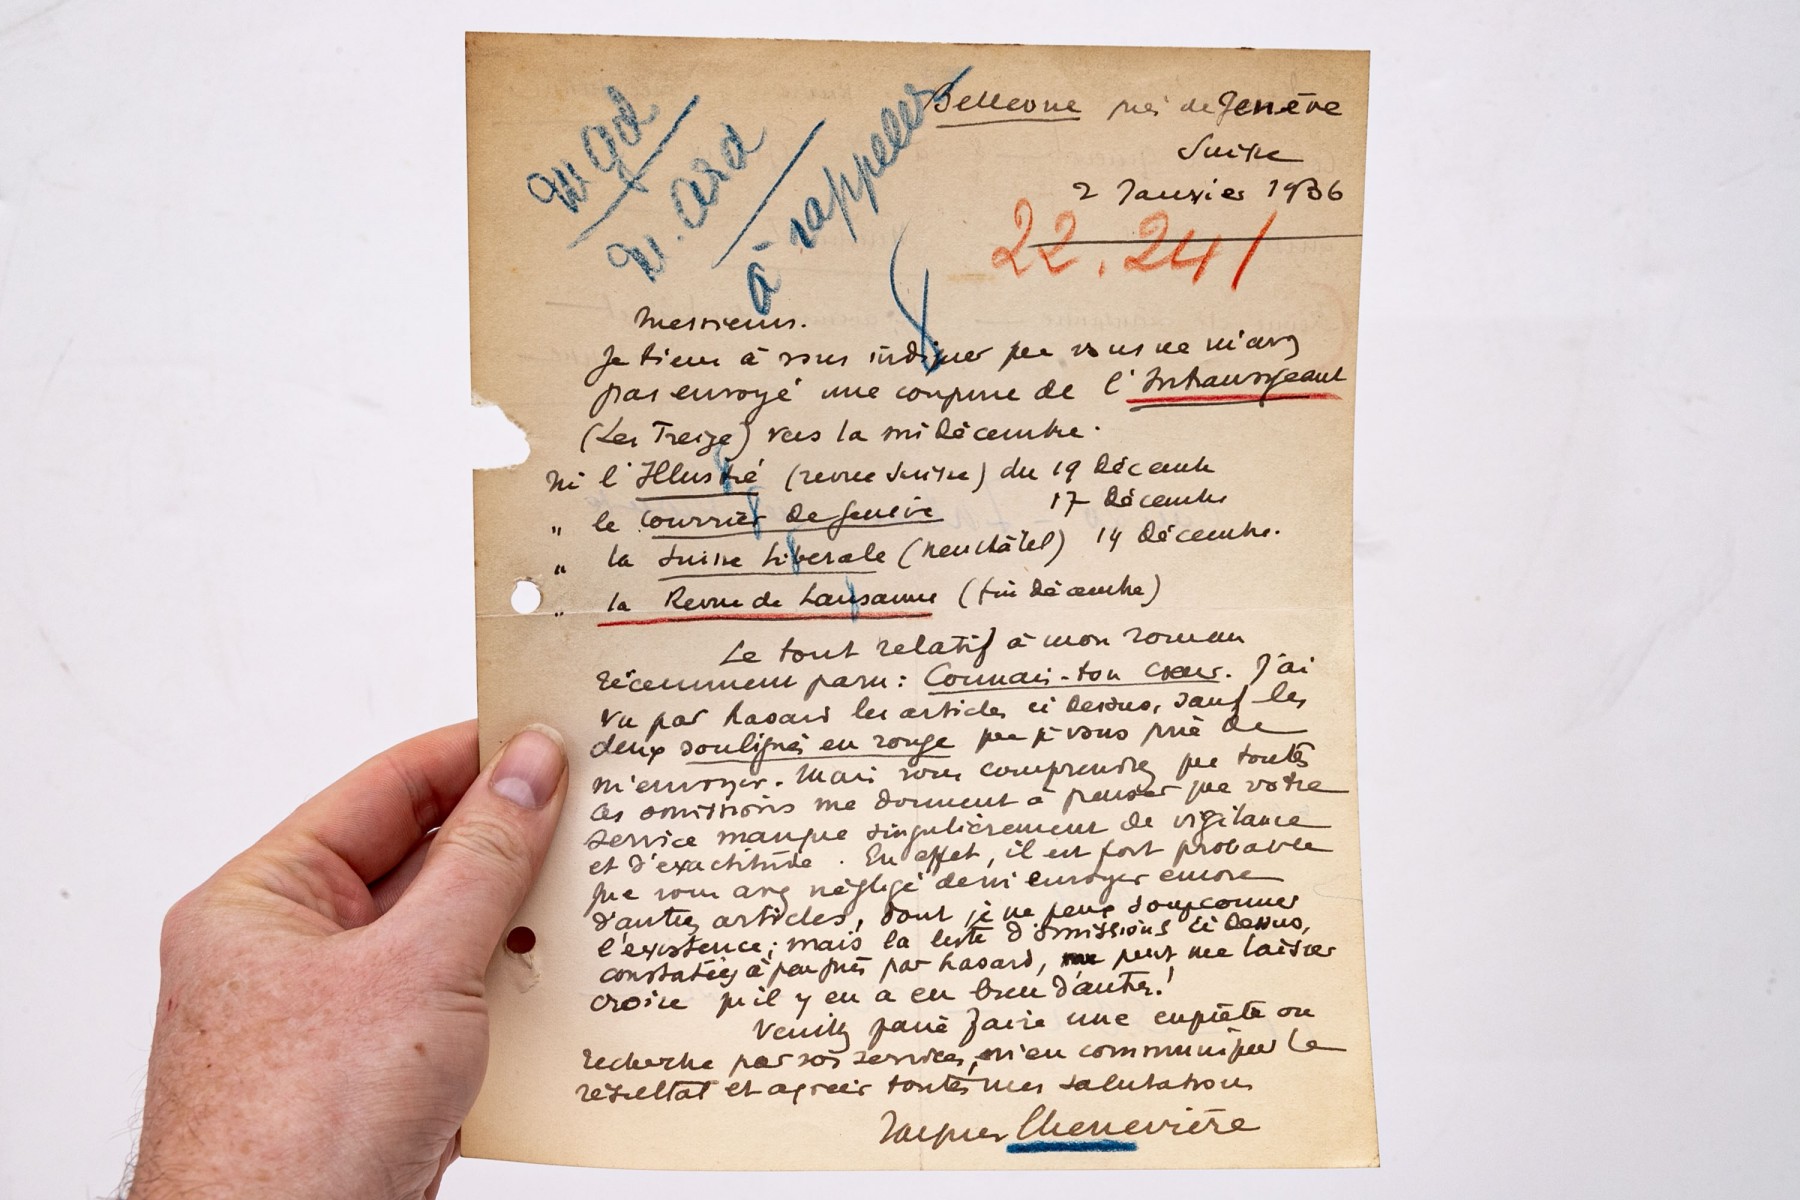 Bellevue près de Genève
Suisse
2 Janvier 1936
à rappeler
22.241
Messieurs.
Je tiens à vous indiquer que vous ne m'avez
pas envoyé une coupure de l'Intransigeant
(Les Treize) vers la mi Décembre.
ni l'Illustré (revue Suisse) du 19 Décembre
" le Courrier de Genève 17 Décembre
" la Suisse Libérale (Neuchâtel) 14 Décembre.
" la Revue de Lausanne (fin Décembre)
Le tout relatif à mon roman
récemment paru : Connais-ton cœur. J'ai
vu par hasard les articles ci dessus, sauf les
deux soulignés en rouge que je vous prie de
m'envoyer. Mais vous comprendrez que toutes
ces omissions me donnent à penser que votre
service manque singulièrement de vigilance
et d'exactitude. En effet, il est fort probable
que vous avez négligé de m'envoyer encore
d'autres articles, dont je ne peux soupçonner
l'existence ; mais la liste d'omissions ci dessus,
constatées à peu près par hasard, peut me laisser
croire qu'il y en a eu bien d'autres !
Veuillez faire une enquête ou
recherche par vos services, m'en communiquer le
résultat et agréer toutes mes salutations
Jacques Chenevière